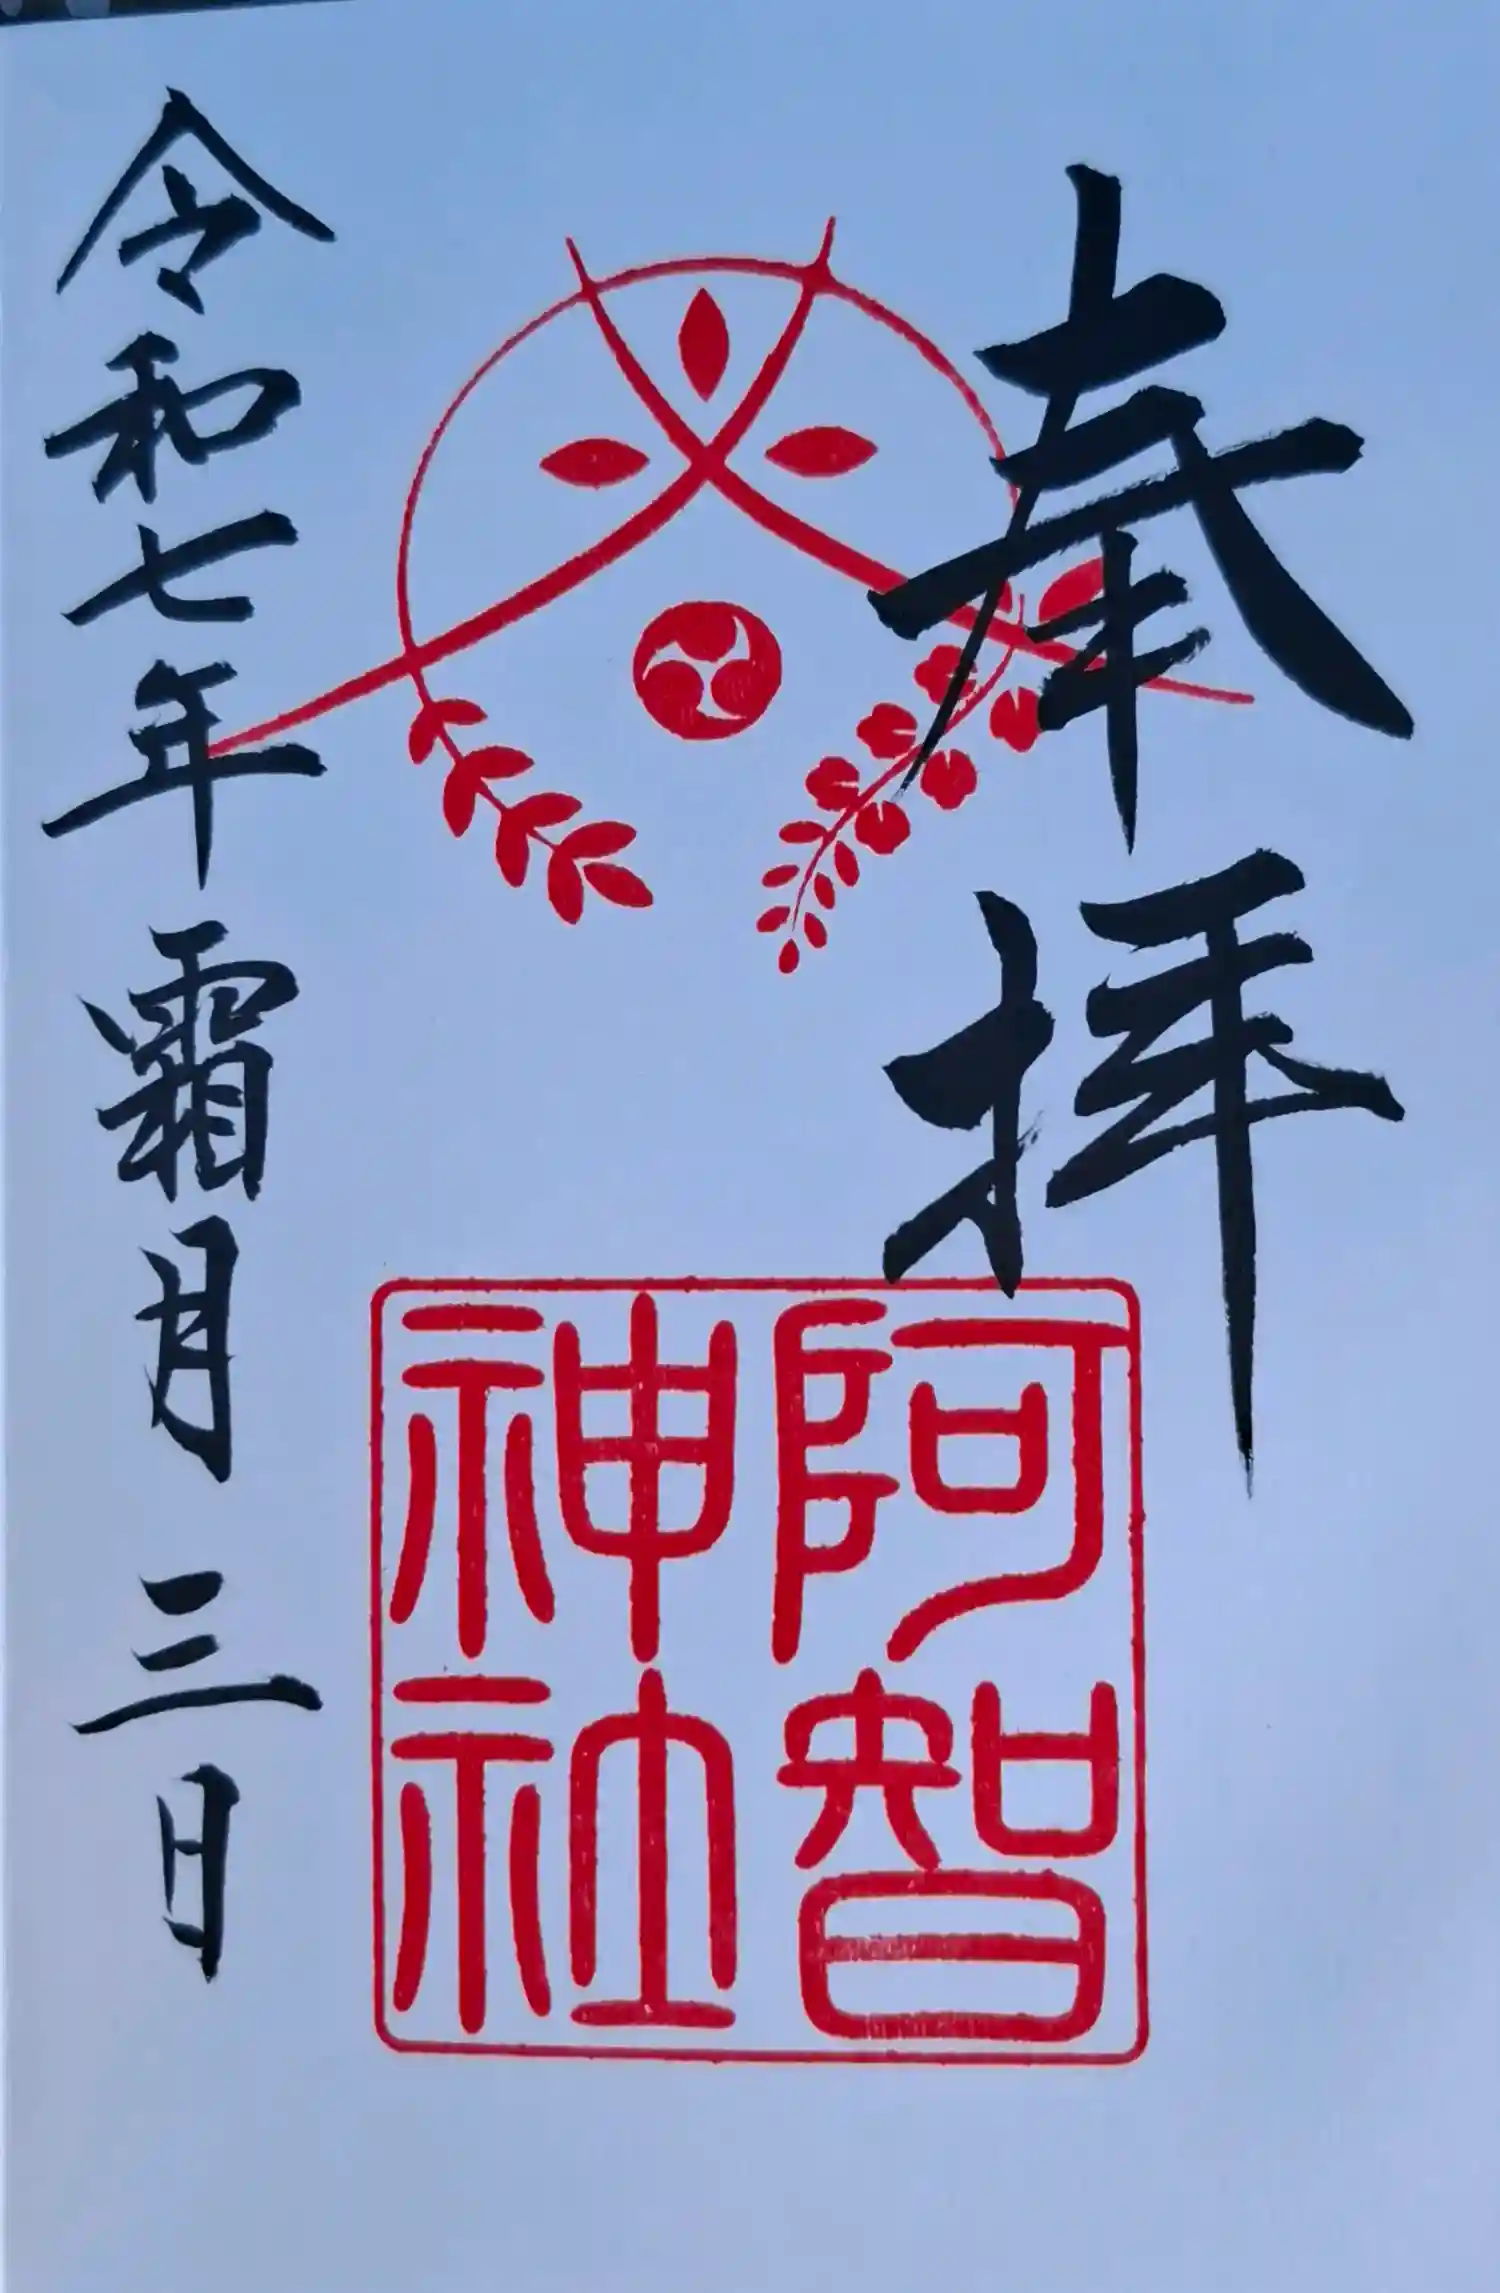 奉拝
阿智
神社
令和七年霜月三日